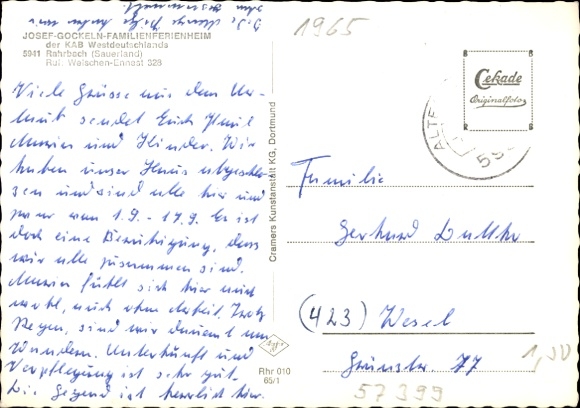 1965
JOSEF-GOCKELN-FAMILIENFERIENHEIM
der KAB Westdeutschlands
5941 Rahrbach (Sauerland)
Ruf: Welschen-Ennest 328
Viele Grüsse aus dem Ur-
laub sendet Euch Paul
und Kinder. Wir
haben unser Haus abgeschlos-
sen und sind alle hier und
zwar vom 1.9. - 17.9. Es ist
doch eine Beruhigung, dass
wir alle zusammen sind.
fühlt sich hier auch
wohl, auch ohne Arbeit. Trotz
Regen, sind wir dauernd am
Wandern. Unterkunft und
Verpflegung ist sehr gut.
Die Gegend ist herrlich hier.
Cramers Kunstanstalt KG, Dortmund
Rhr 010
65/1
Cekade
Originalfoto
Familie
Gerhard
(423) Wesel
Grünstr. 77
1,50
57399